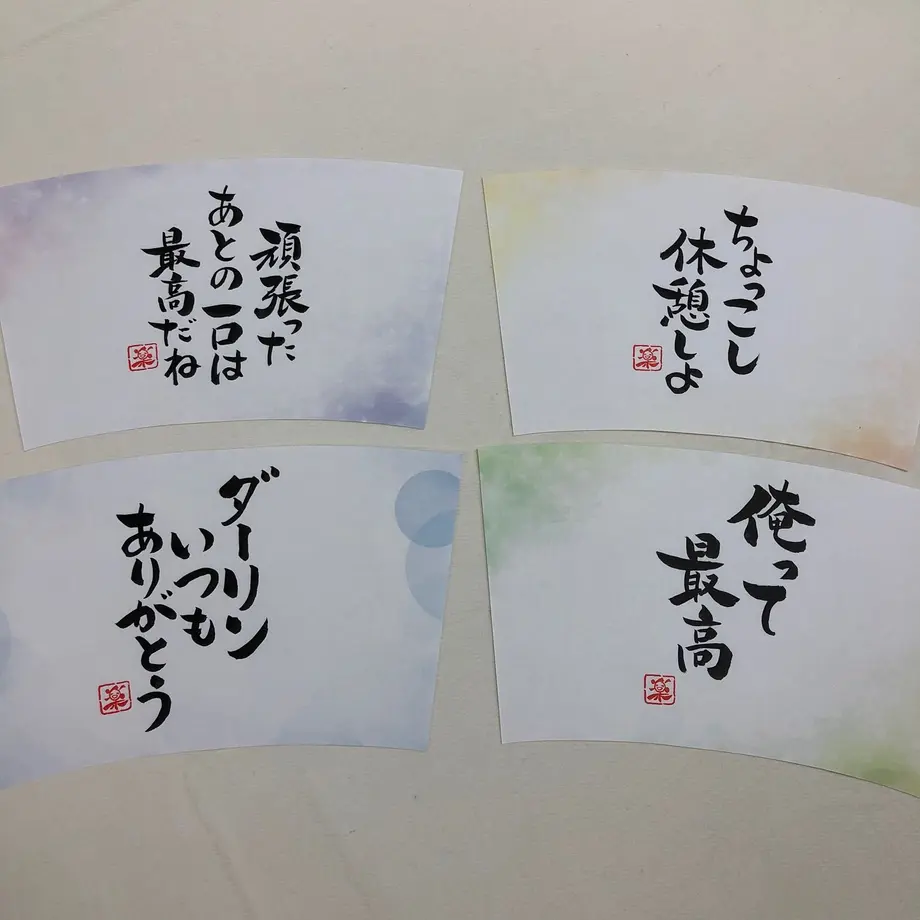 頑張った
あとの一口は
最高だね
楽
ちょっこし
休憩しよ
楽
ダーリン
いつも
ありがとう
楽
俺って
最高
楽